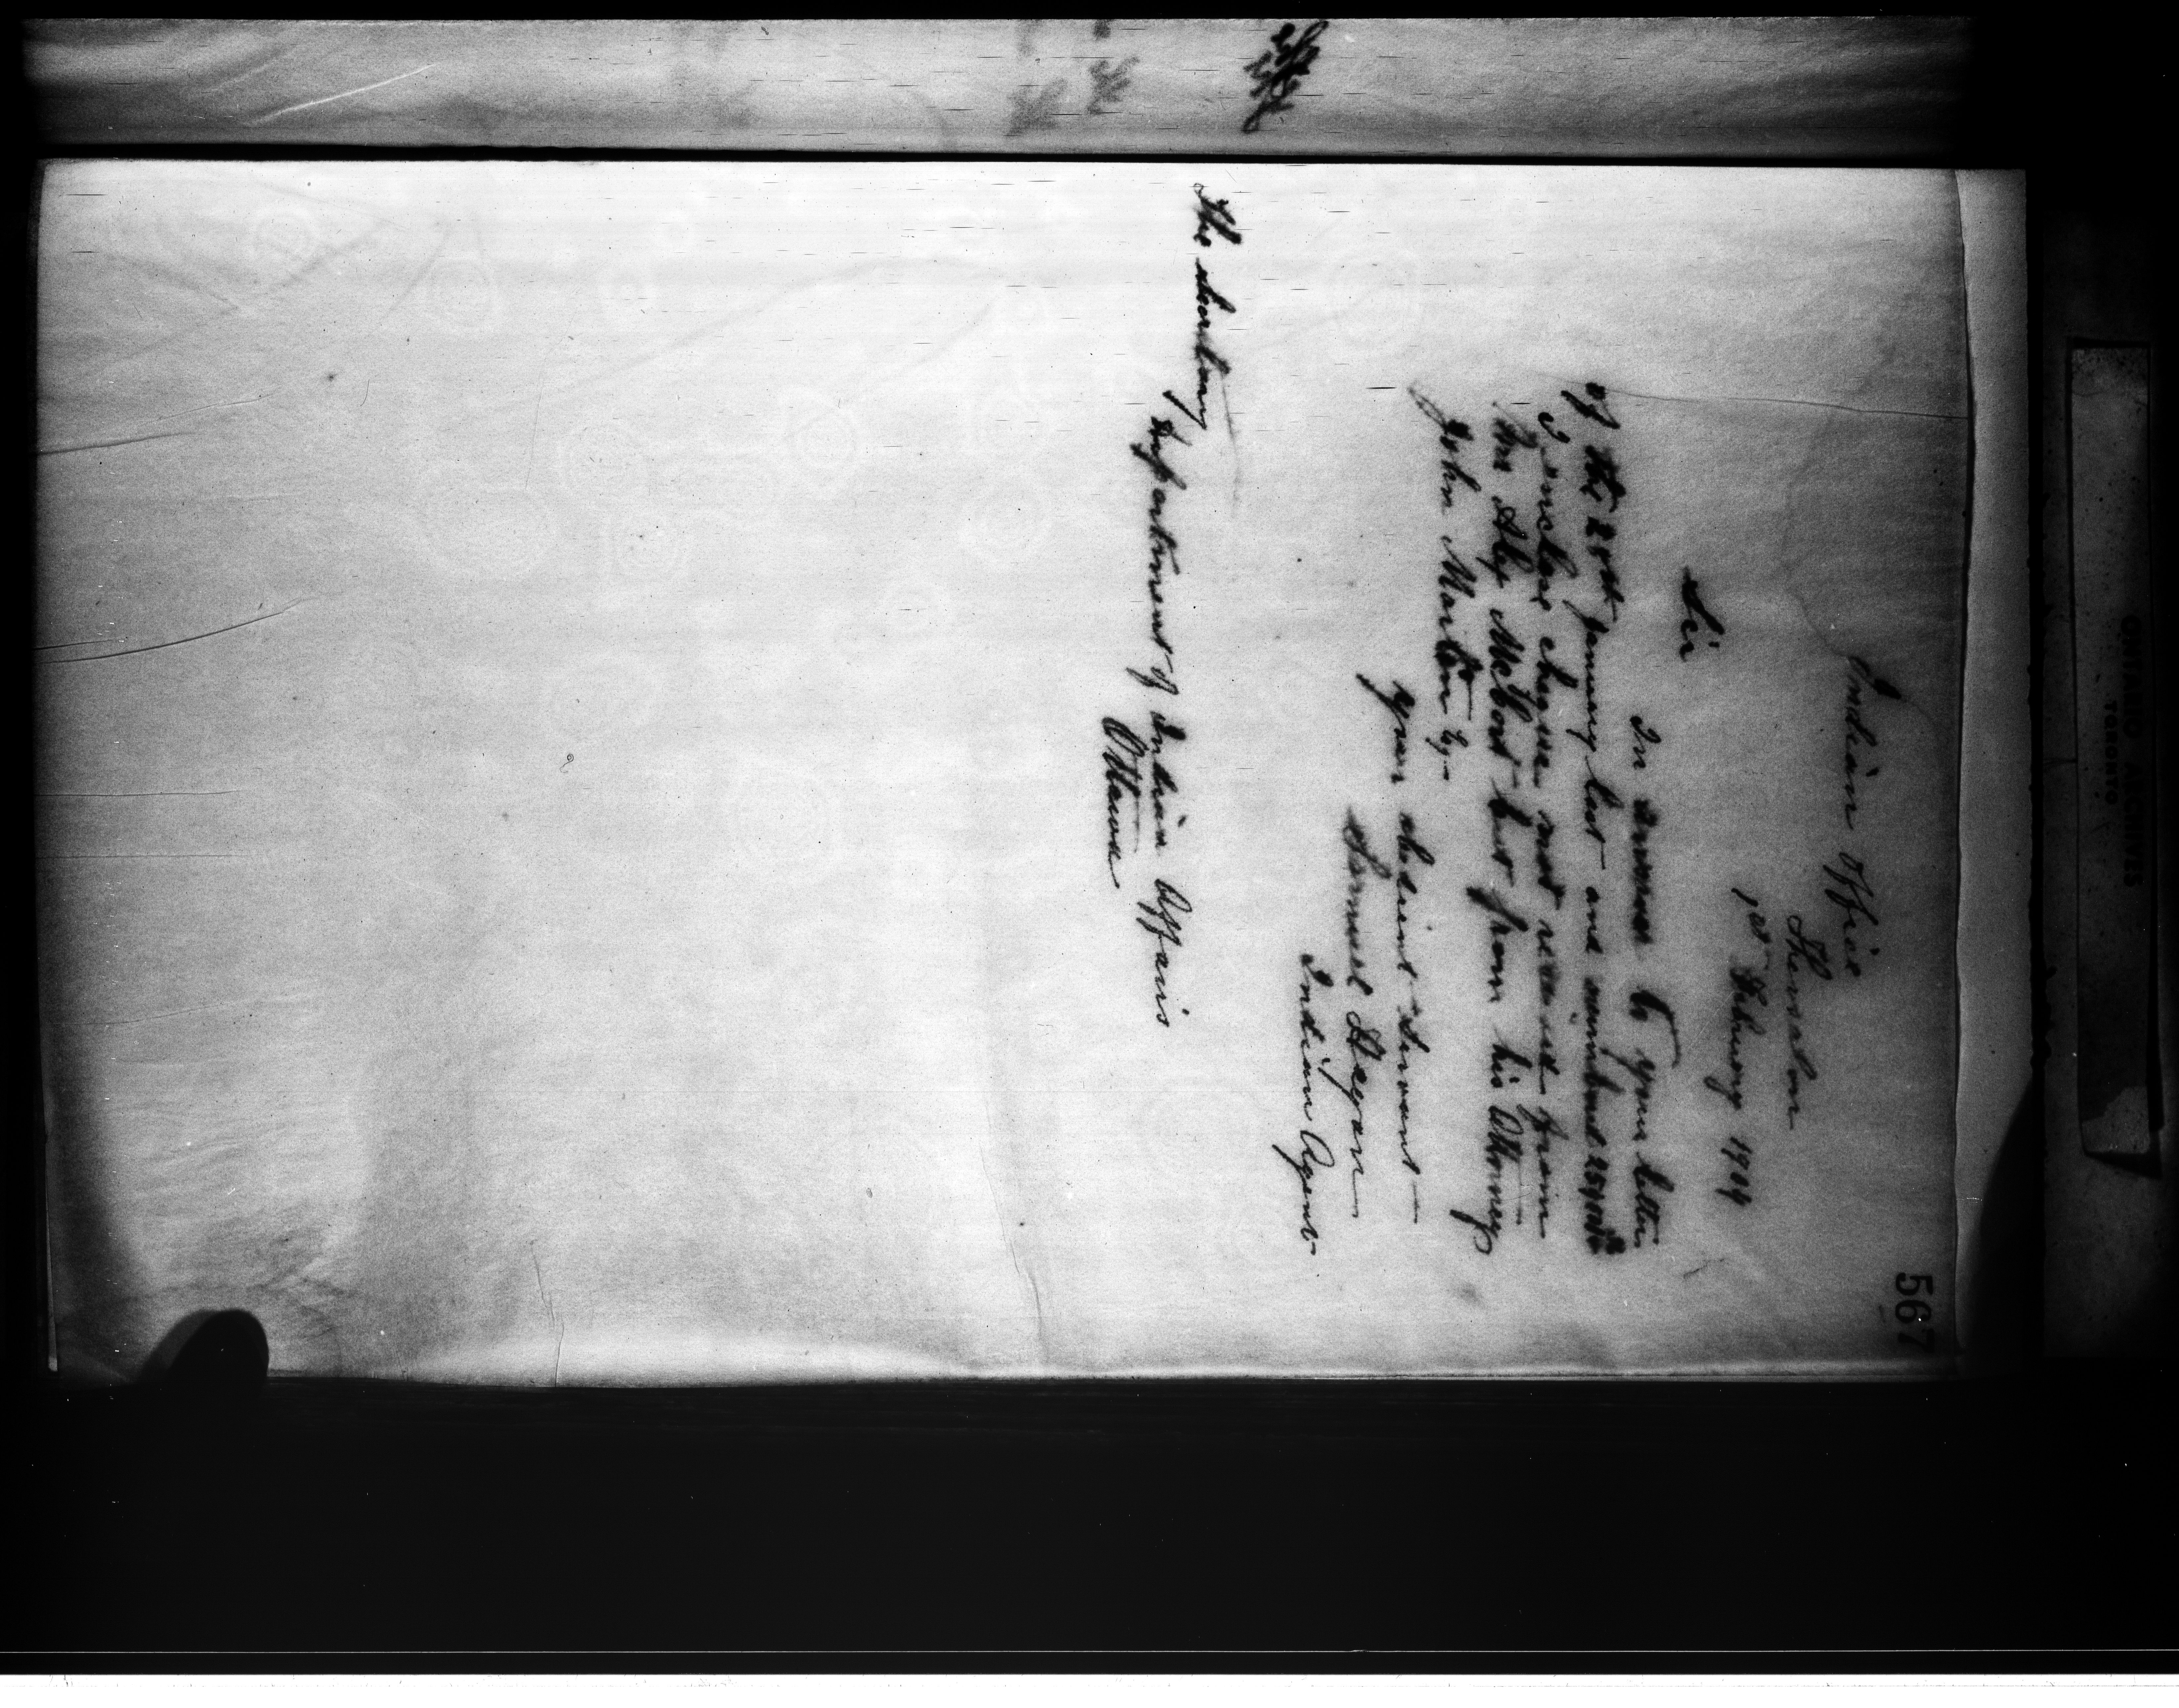 567
Indian Office
Thessalon
1st February 1904
Sir
In answer to your letter
of the 28th January last and numbered
I inclose cheque not received from
Mr Alex McCort but from his Attorney
John
your obedient Servant
Samuel Hagan
Indian Agent
The Secretary
Department of Indian Affairs
Ottawa
ONTARIO ARCHIVES
TORONTO